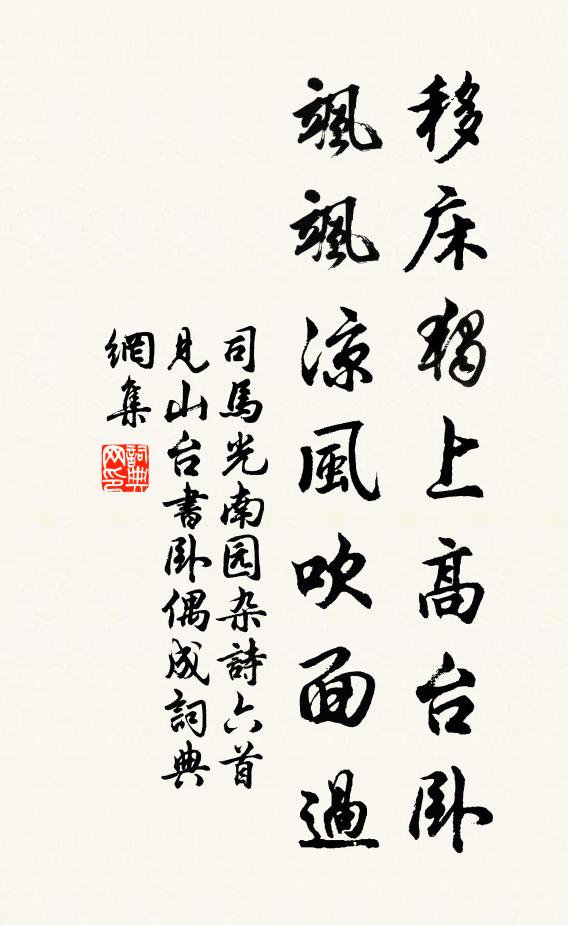 移床獨上高台卧
颯颯涼風吹面過
司馬光南园杂詩六首
見山台書卧偶成詞典
網集
詞典
网印